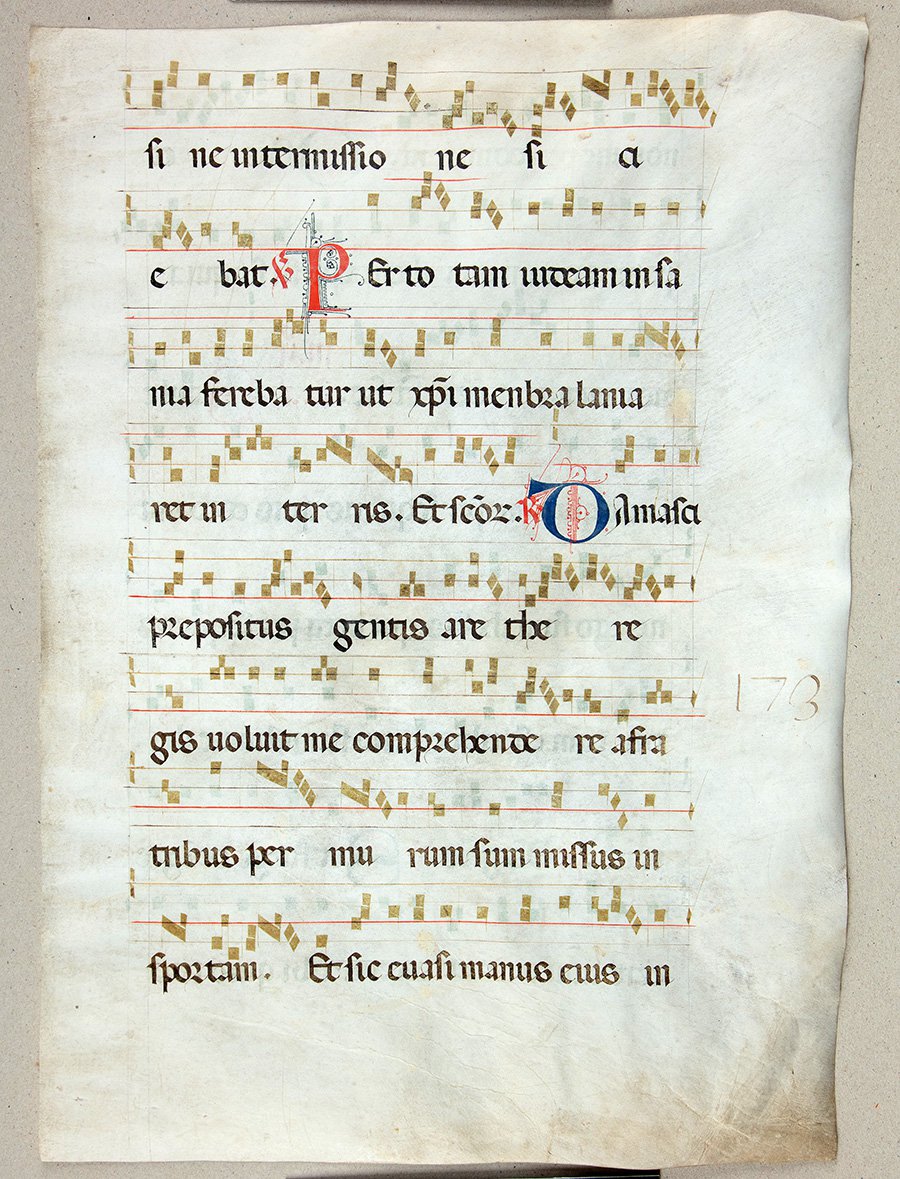 si ne intermissio ne si ci
e bat. ℣ PEr to tam iudeam in sa
ma fereba tur ut xp̄i menbra lania
ret in ter ris. Et sc̄oꝝ. ℟ DAmasci
prepositus gentis are the re
gis uoluit me comprehende re a fra
tribus per mu rum sum missus in
sportam. Et sic euasi manus eius in
173